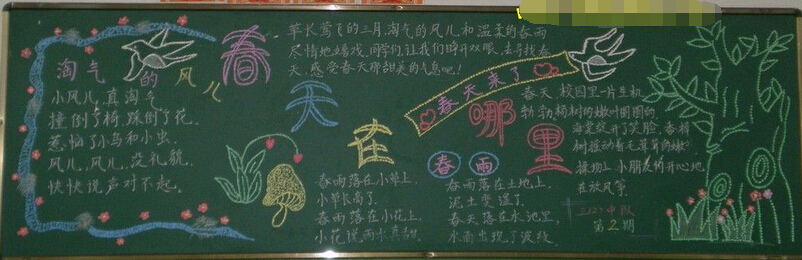 淘气的风儿
小风儿,真淘气,
撞倒了树,踩倒了花,
惹恼了小鸟和小虫.
风儿,风儿,没礼貌,
快快说声对不起.
春天在哪里
草长莺飞的三月,淘气的风儿和温柔的春雨
尽情地嬉戏,同学们,让我们睁开双眼,去寻找春
天,感受春天那甜美的气息吧!
春天来了
春天,校园里一片生机
勃勃,杨树的嫩叶圆圆的,
海棠绽开了笑脸,香樟
树摇动着毛茸茸的嫩
操场上,小朋友们开心地
在放风筝.
春雨
春雨落在小草上,
小草长高了.
春雨落在小花上,
小花说雨水真甜.
春雨落在土地上,
泥土变湿了.
春天落在水池里,
水面出现了波纹.
中队
第2期